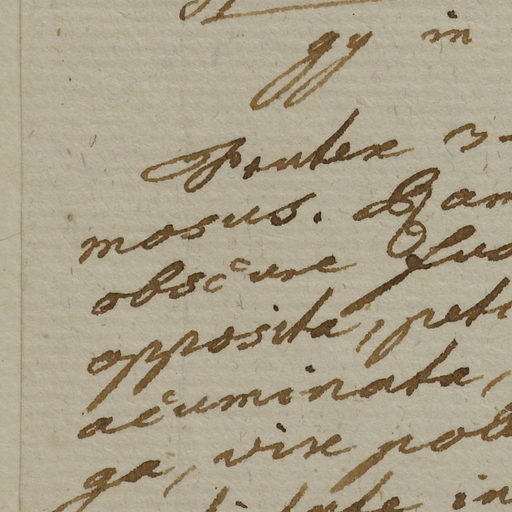 gy in
Frutex 3-
mosus. Ram
obscure fus
opposita, peti
acuminata,
ga, vix pol